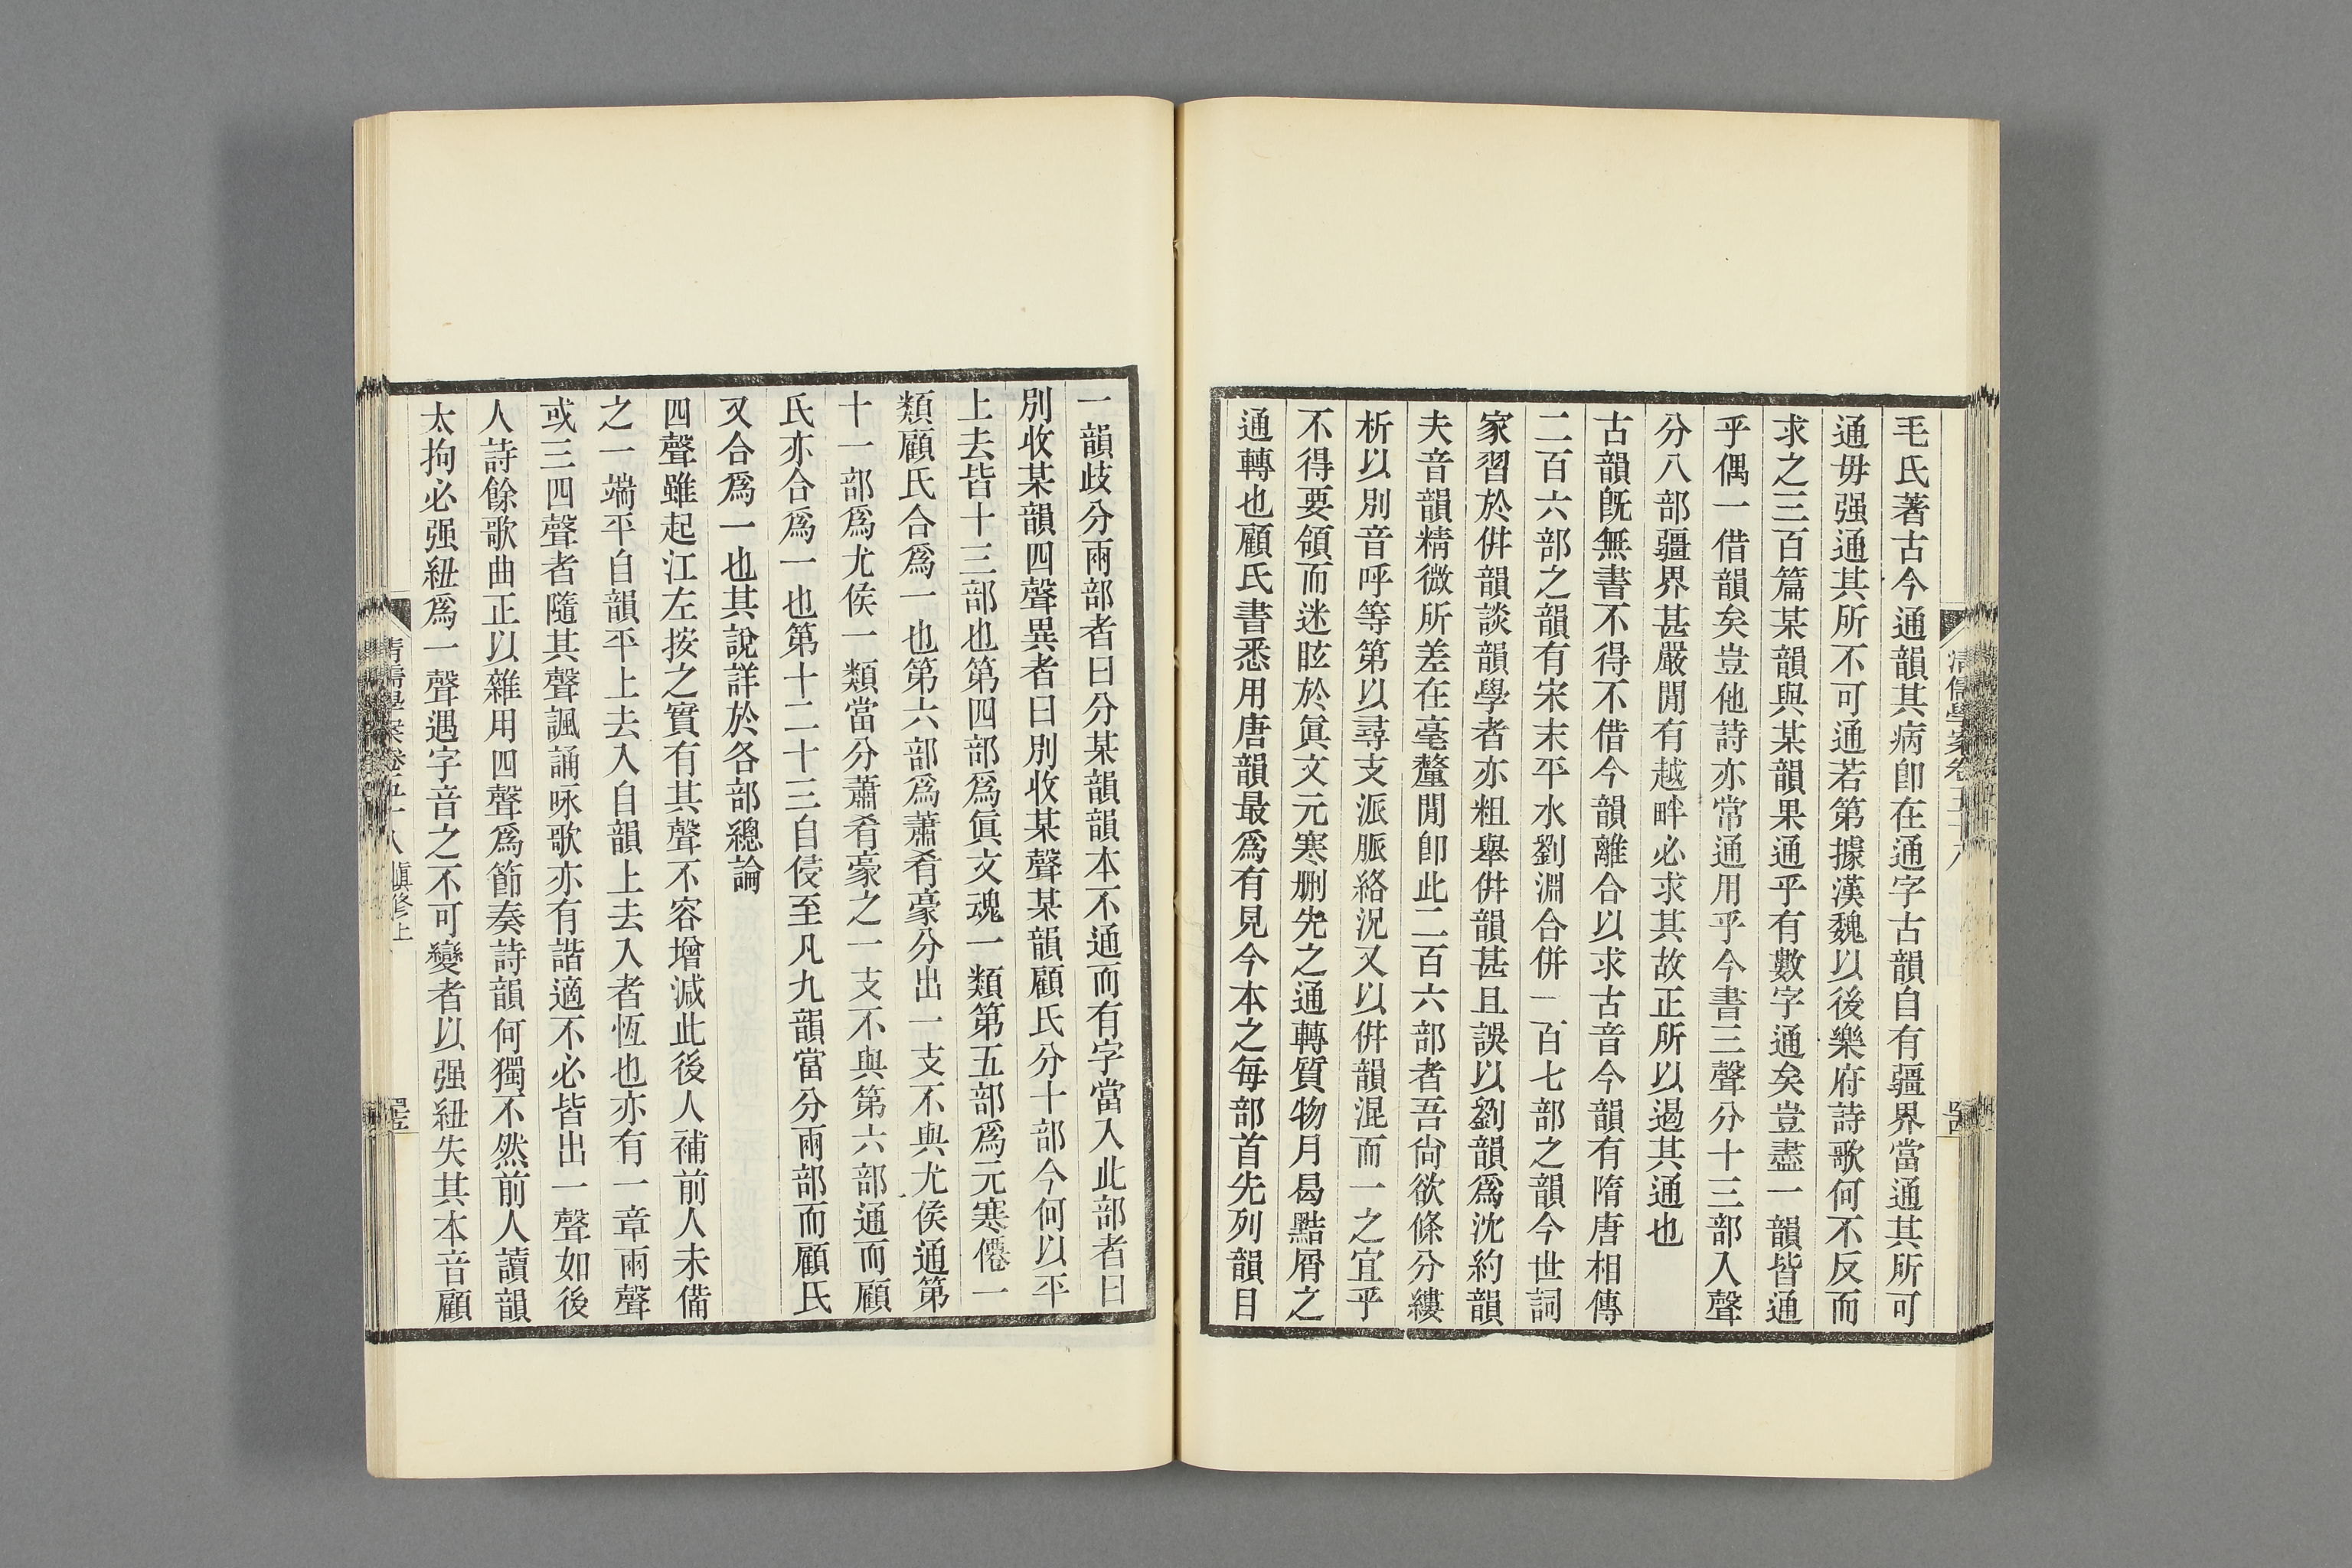 毛氏著古今通韻其病卽在通字古韻自有疆界當通其所可
通毋强通其所不可通若第據漢魏以後樂府詩歌何不反而
求之三百篇某韻與某韻果通乎有數字通矣豈盡一韻皆通
乎偶一借韻矣豈他詩亦常通用乎今書三聲分十三部入聲
分八部疆界甚嚴閒有越畔必求其故正所以遏其通也
古韻旣無書不得不借今韻離合以求古音今韻有隋唐相傳
二百六部之韻有宋末平水劉淵合併一百七部之韻今世詞
家習於倂韻談韻學者亦粗舉倂韻甚且誤以劉韻爲沈約韻
夫音韻精微所差在毫釐閒卽此二百六部者吾尙欲條分縷
析以別音呼等第以尋支派脈絡況又以倂韻混而一之宜乎
不得要領而迷眩於眞文元寒删先之通轉質物月曷黠屑之
通轉也顧氏書悉用唐韻最爲有見今本之每部首先列韻目
清儒學案卷五十八
一韻歧分兩部者曰分某韻韻本不通而有字當入此部者曰
別收某韻四聲異者曰別收某聲某韻顧氏分十部今何以平
上去皆十三部也第四部爲眞文魂一類第五部爲元寒僊一
類顧氏合爲一也第六部爲蕭肴豪分出一支不與尤侯通第
十一部爲尤侯一類當分蕭肴豪之一支不與第六部通而顧
氏亦合爲一也第十二十三自侵至凡九韻當分兩部而顧氏
又合爲一也其說詳於各部總論
四聲雖起江左按之實有其聲不容增減此後人補前人未備
之一端平自韻平上去入自韻上去入者恆也亦有一章兩聲
或三四聲者隨其聲諷誦咏歌亦有諧適不必皆出一聲如後
人詩餘歌曲正以雜用四聲爲節奏詩韻何獨不然前人讀韻
太拘必强紐爲一聲遇字音之不可變者以强紐失其本音顧
清儒學案卷五十八 愼修上